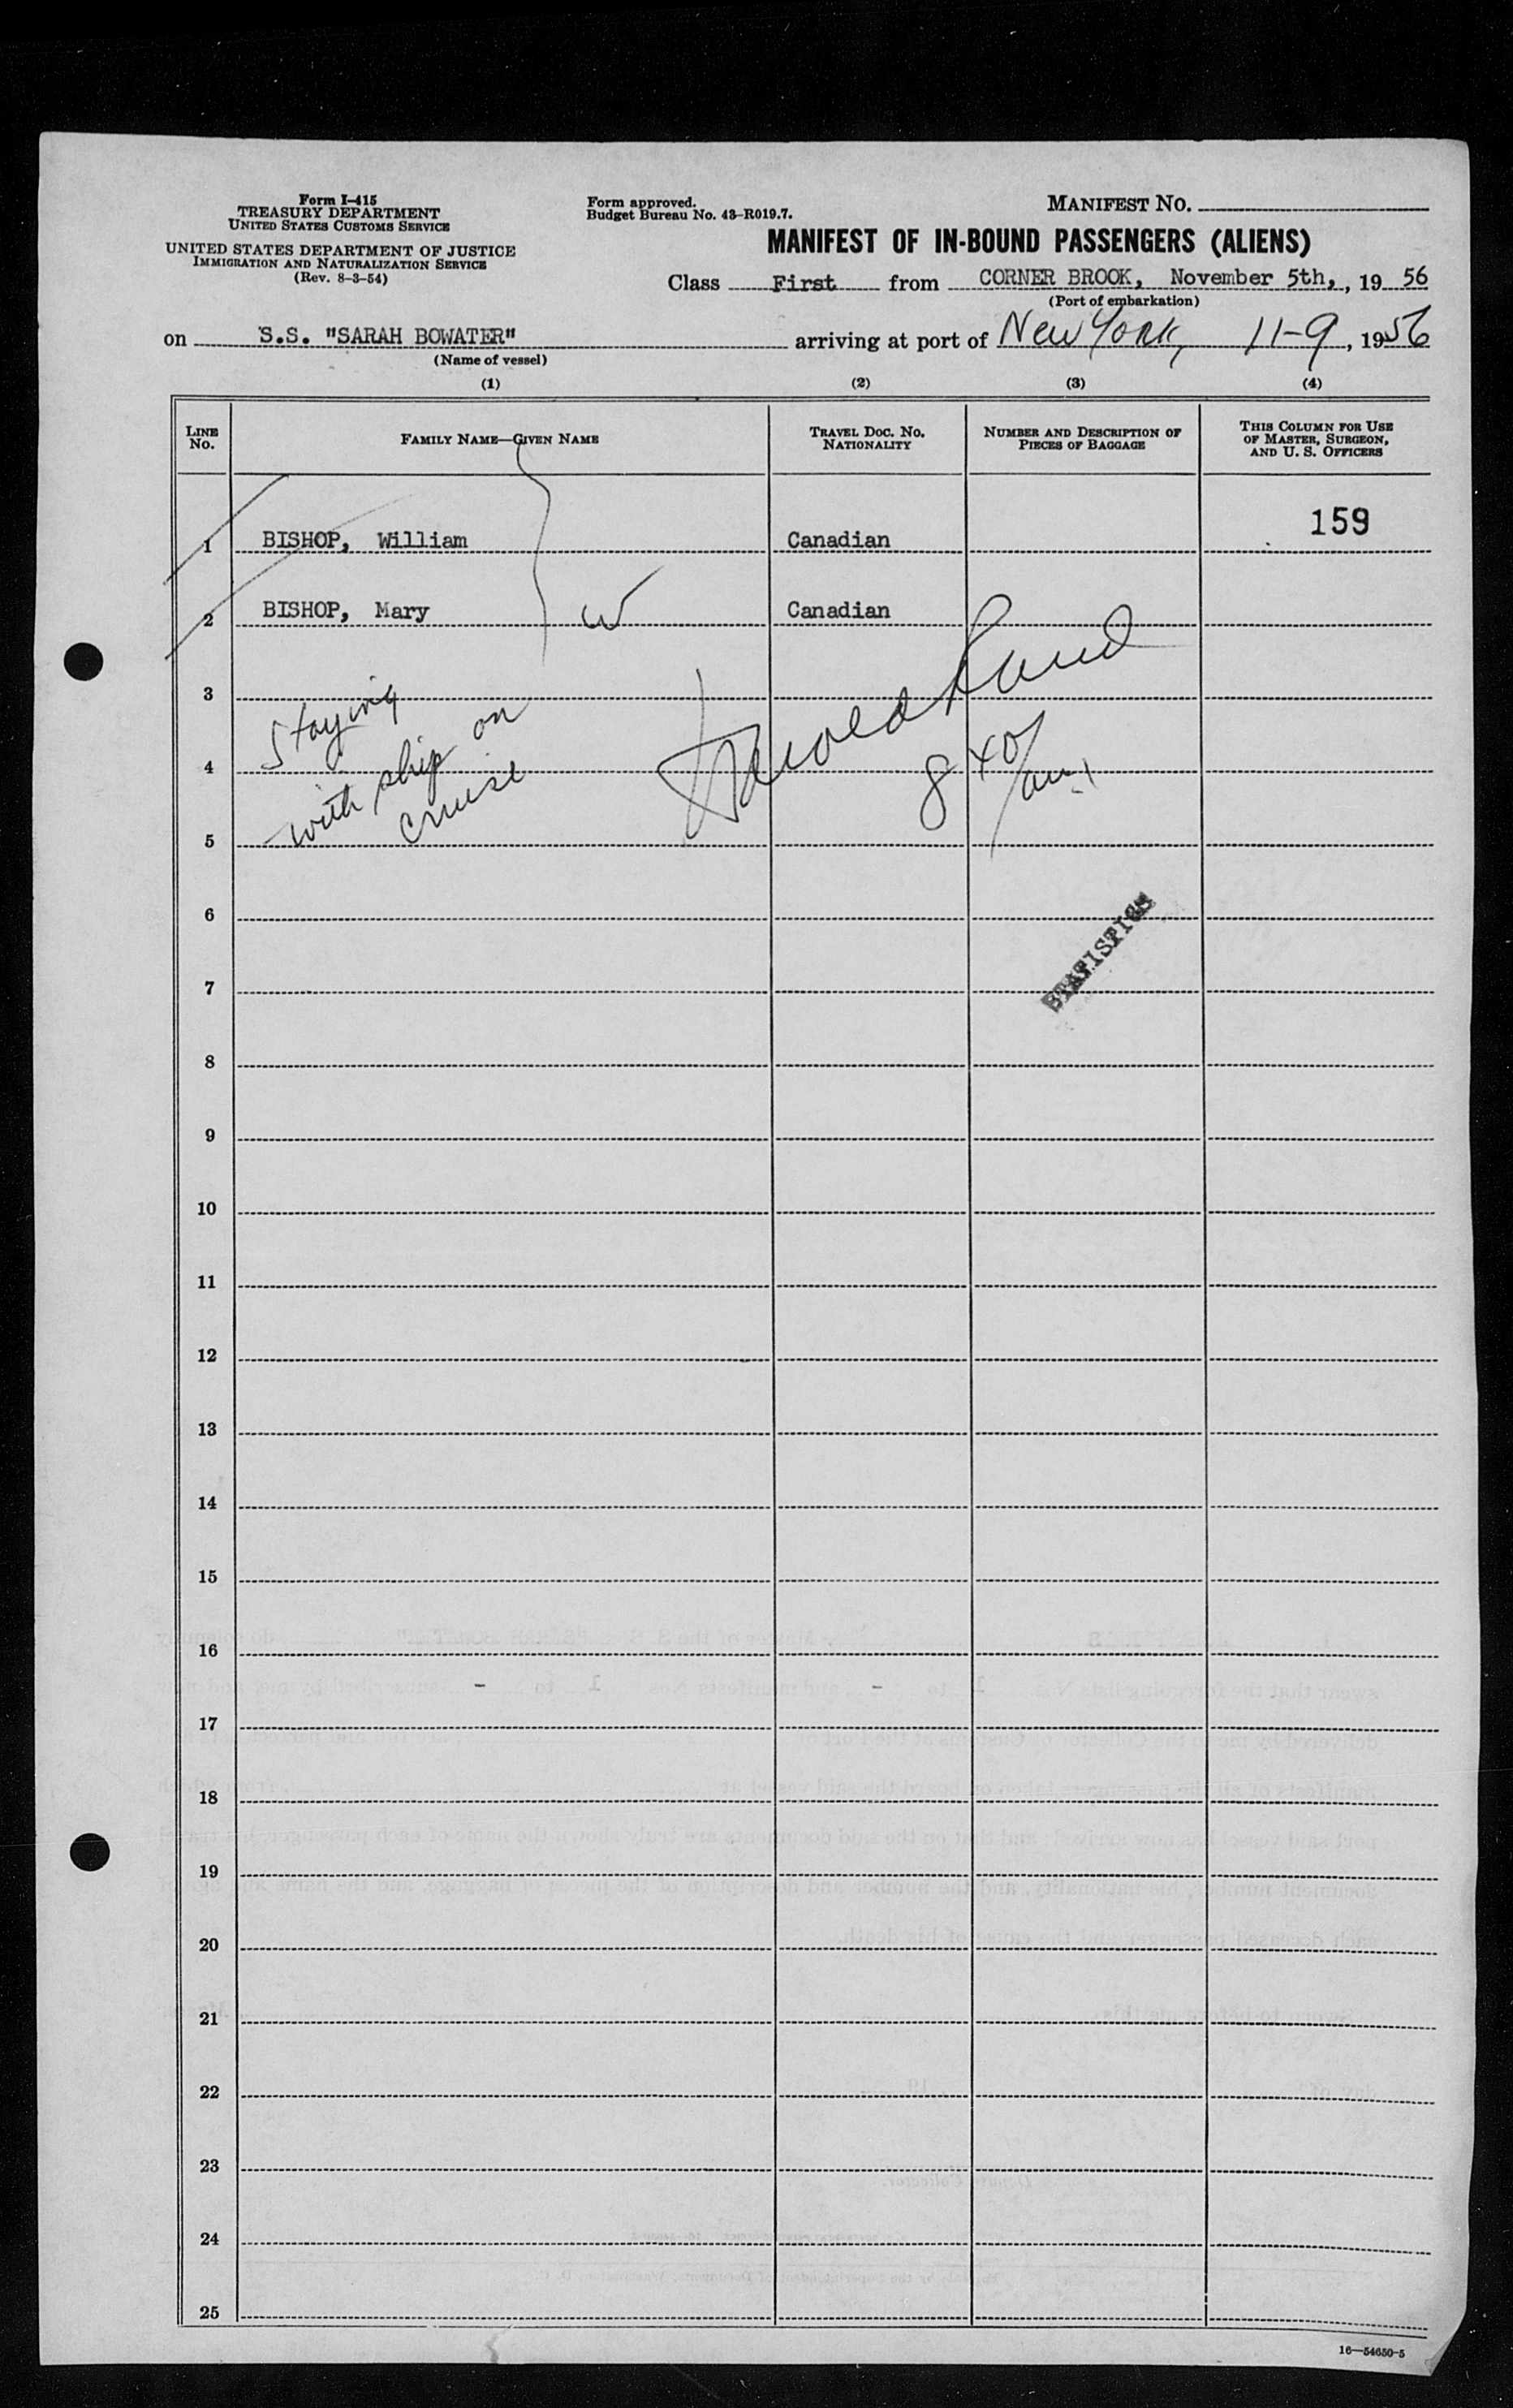 Form I-415
TREASURY DEPARTMENT
UNITED STATES CUSTOMS SERVICE
UNITED STATES DEPARTMENT OF JUSTICE
IMMIGRATION AND NATURALIZATION SERVICE
(Rev. 8-3-54)
Form approved.
Budget Bureau No. 43-R019.7.
MANIFEST NO.
MANIFEST OF IN-BOUND PASSENGERS (ALIENS)
Class First from CORNER BROOK, November 5th, , 19 56
(Port of embarkation)
on S.S. "SARAH BOWATER" arriving at port of New York, 11-9, 1956
(Name of vessel)
(1) (2) (3) (4)
LINE NO. FAMILY NAME—GIVEN NAME TRAVEL DOC. NO. NATIONALITY NUMBER AND DESCRIPTION OF PIECES OF BAGGAGE THIS COLUMN FOR USE OF MASTER, SURGEON, AND U. S. OFFICERS
159
1 BISHOP, William Canadian
2 BISHOP, Mary W Canadian
3 Staying
4 with ship on 8 40/am
5 cruise
6
STATISTICS
7
8
9
10
11
12
13
14
15
16
17
18
19
20
21
22
23
24
25
16—54650-5